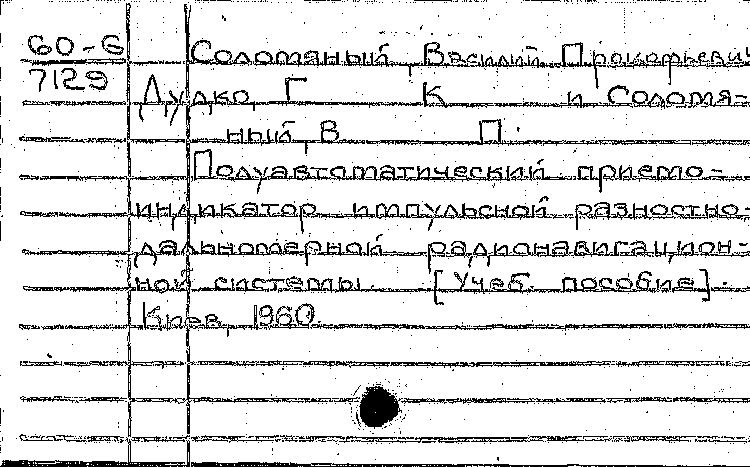 60-6 Соломяный, Василий Прокофьевич
7129 Дудко, Г К и Соломя-
ный, В П.
Полуавтоматический приемо-
индикатор импульсной разностно-
дальномерной радионавигацион-
ной системы. [Учеб. пособие].
Киев, 1960.